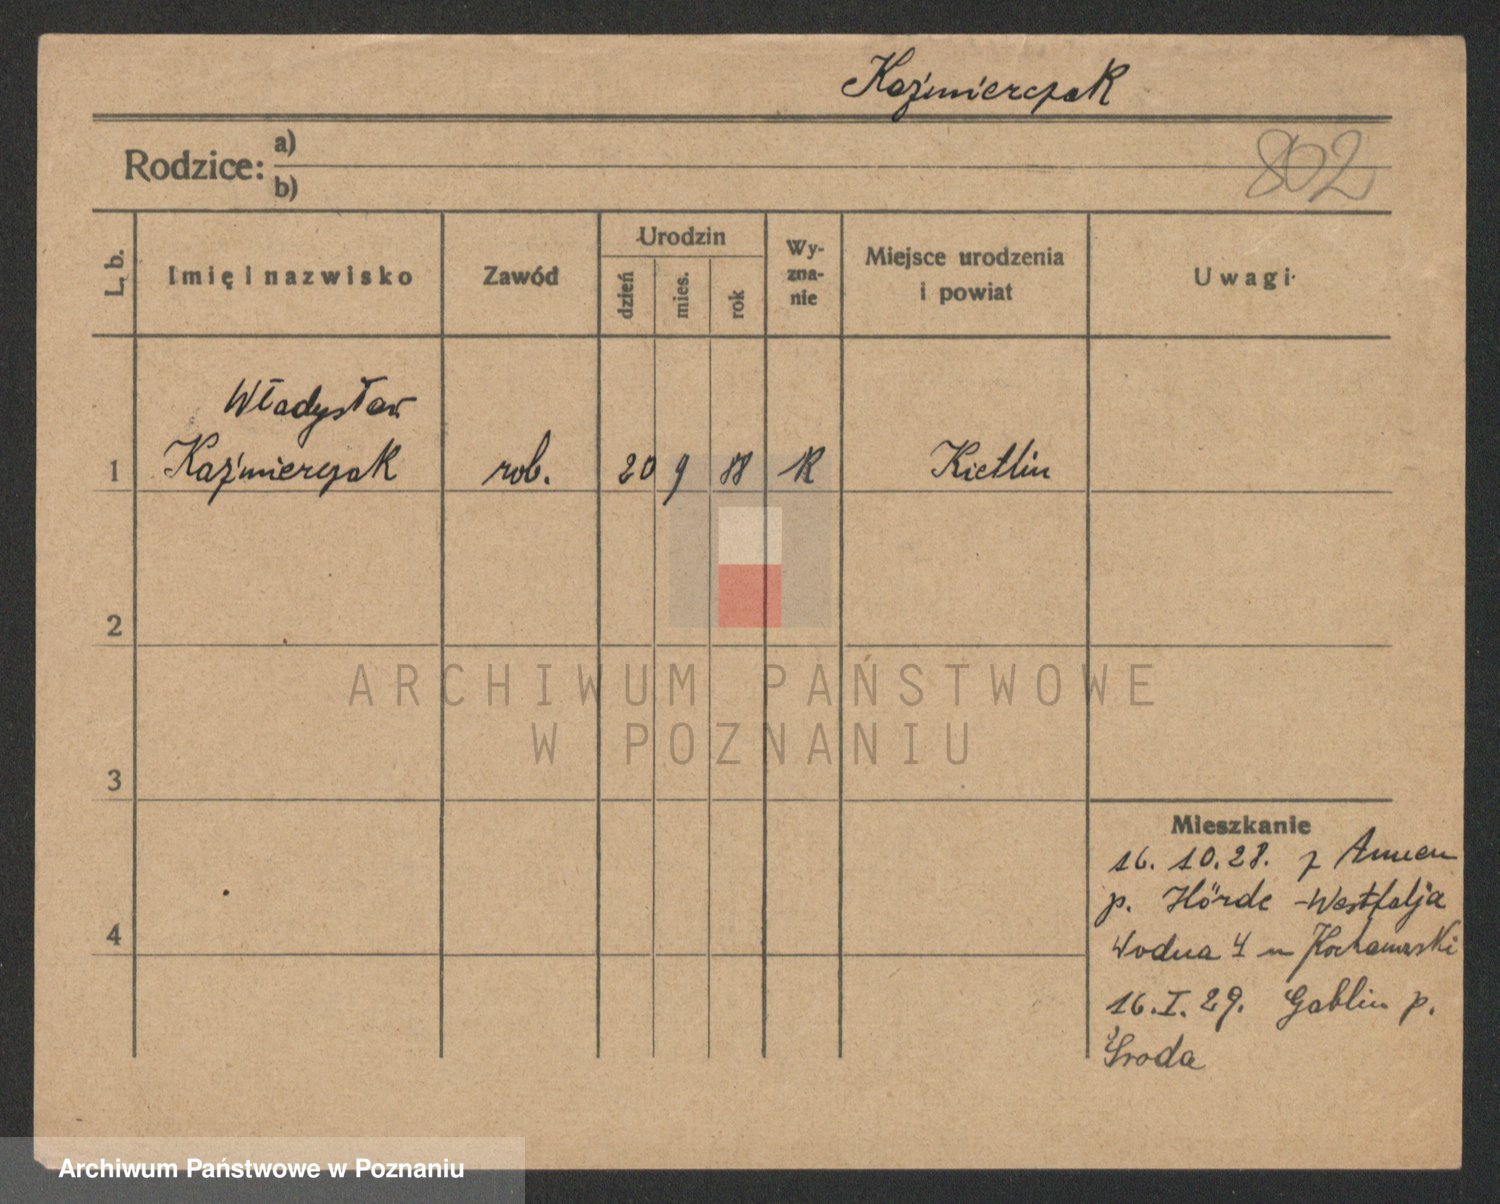 Kaźmierczak
802
Rodzice: a)
b)
L. b.
Imię i nazwisko
Zawód
Urodzin
dzień
mies.
rok
Wy-
zna-
nie
Miejsce urodzenia
i powiat
Uwagi
Władysław
1 Kaźmierczak rob. 20 9 88 K Kietlin
2
3
4
ARCHIWUM PAŃSTWOWE
W POZNANIU
Mieszkanie
16. 10. 28. z Annen
p. Hörde - Westfalja
Wodna 4
16. I. 29. p.
Środa
Archiwum Państwowe w Poznaniu